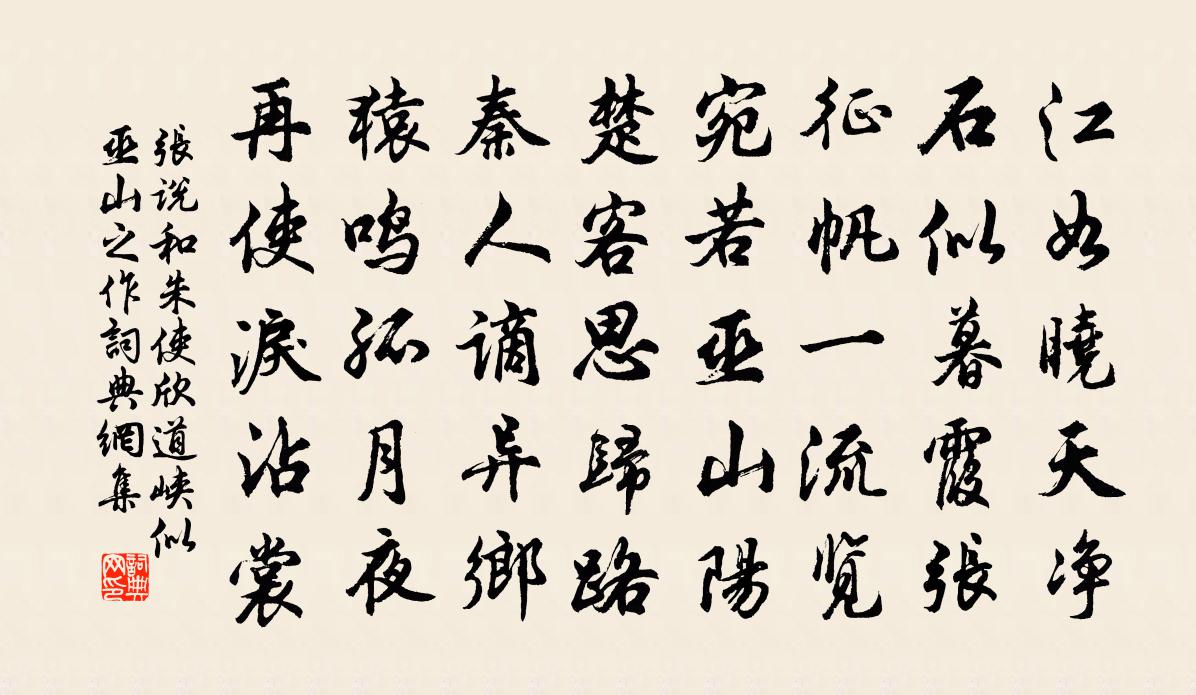 江如曉天净
石似暮霞張
征帆一流览
宛若巫山陽
楚客思歸路
秦人谪异鄉
猿鸣孤月夜
再使淚沾裳
張说和朱使欣道峽似
巫山之作詞典網集
詞典
网印